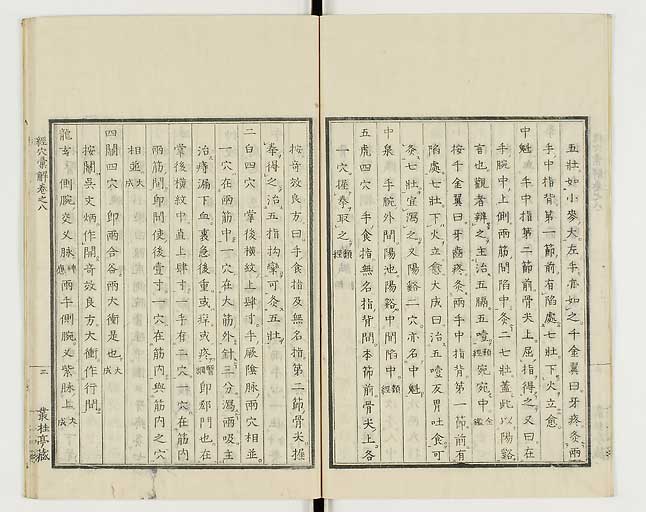 五壯如小麥大左手亦如之千金翼曰牙疼灸兩
手中指背第一節前有陷處七壯下火立愈
中魁 手中指第二節前骨尖上屈指得之又曰在
手腕中上側兩筋間陷中灸二七壯蓋此以陽谿
言也觀者辨之主治五膈五噎類經宛宛中金鑑
按千金翼曰牙齒疼灸兩手中指背第一節前有
陷處七壯下火立愈大成曰治五噎反胃吐食可
灸七壯宜瀉之又陽谿二穴亦名中魁
中泉 手腕外間陽池陽谿中間陷中類經
五虎四穴 手食指無名指背間本節前骨尖上各
一穴握拳取之類經
按奇效良方曰手食指及無名指第二節骨尖握
拳得之治五指拘攣可灸五壯
二白四穴 掌後橫紋上肆寸手厥陰脉兩穴相並
一穴在兩筋中一穴在大筋外針三分瀉兩吸主
治痔漏下血裏急後重或痒或疼醫綱即郄門也在
掌後橫紋中直上肆寸一手有二穴一穴在筋內
兩筋間即間使後壹寸一穴在筋內與筋內之穴
相並大成
四關四穴 即兩合谷兩大衝是也大成
按關吳文炳作開奇效良方大衝作行間
龍玄 側腕交叉脉神應兩手側腕叉紫脉上大成
經穴彙解卷之八
三
叢桂亭藏